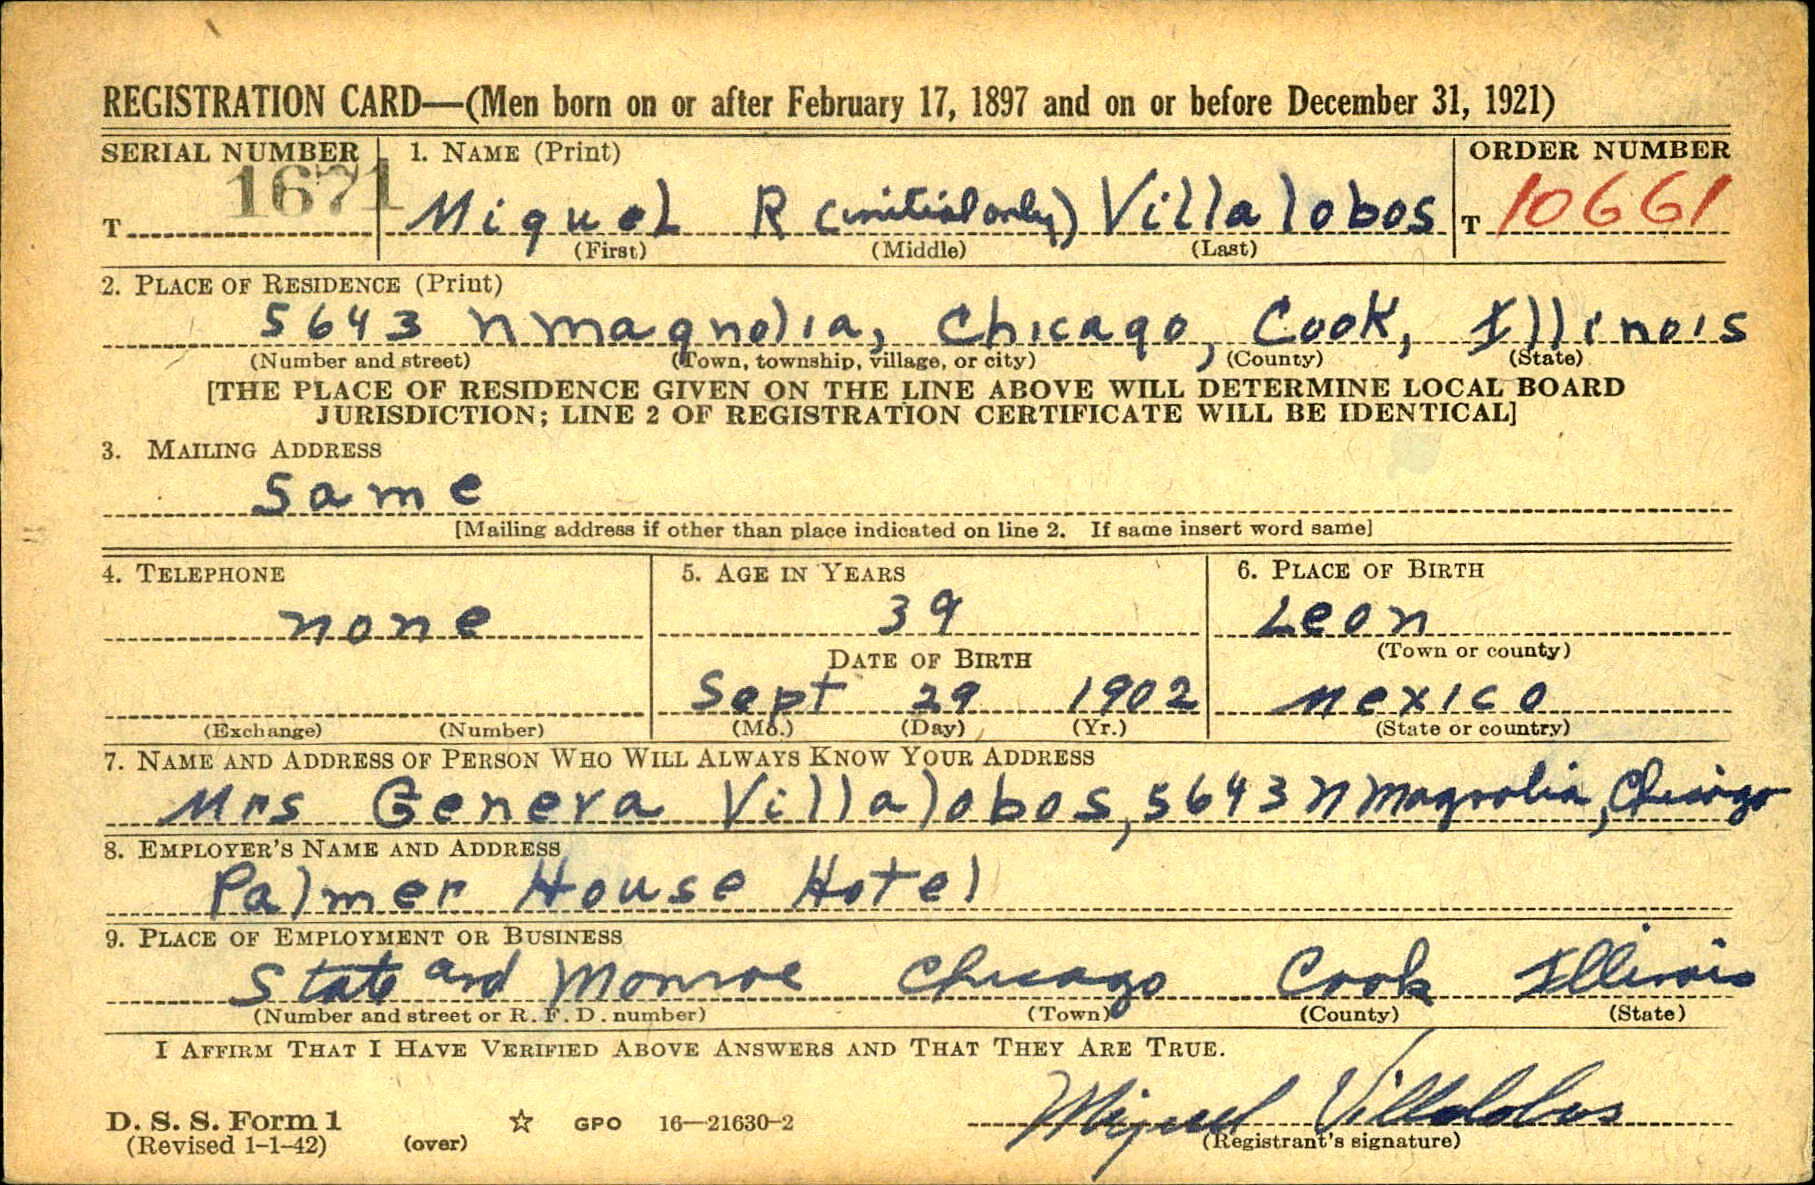 REGISTRATION CARD—(Men born on or after February 17, 1897 and on or before December 31, 1921)
SERIAL NUMBER 1. NAME (Print) ORDER NUMBER
T 1671 Miguel R (initial only) Villalobos T 10661
(First) (Middle) (Last)
2. PLACE OF RESIDENCE (Print)
5643 N Magnolia, Chicago, Cook, Illinois
(Number and street) (Town, township, village, or city) (County) (State)
[THE PLACE OF RESIDENCE GIVEN ON THE LINE ABOVE WILL DETERMINE LOCAL BOARD
JURISDICTION; LINE 2 OF REGISTRATION CERTIFICATE WILL BE IDENTICAL]
3. MAILING ADDRESS
Same
[Mailing address if other than place indicated on line 2. If same insert word same]
4. TELEPHONE 5. AGE IN YEARS 6. PLACE OF BIRTH
none 39 Leon
(Town or county)
DATE OF BIRTH
Sept 29 1902 Mexico
(Exchange) (Number) (Mo.) (Day) (Yr.) (State or country)
7. NAME AND ADDRESS OF PERSON WHO WILL ALWAYS KNOW YOUR ADDRESS
Mrs Geneva Villalobos, 5643 N Magnolia, Chicago
8. EMPLOYER'S NAME AND ADDRESS
Palmer House Hotel
9. PLACE OF EMPLOYMENT OR BUSINESS
State and Monroe Chicago Cook Illinois
(Number and street or R. F. D. number) (Town) (County) (State)
I AFFIRM THAT I HAVE VERIFIED ABOVE ANSWERS AND THAT THEY ARE TRUE.
Miguel Villalobos
D. S. S. Form 1 ☆ GPO 16—21630-2
(Revised 1-1-42) (over) (Registrant's signature)